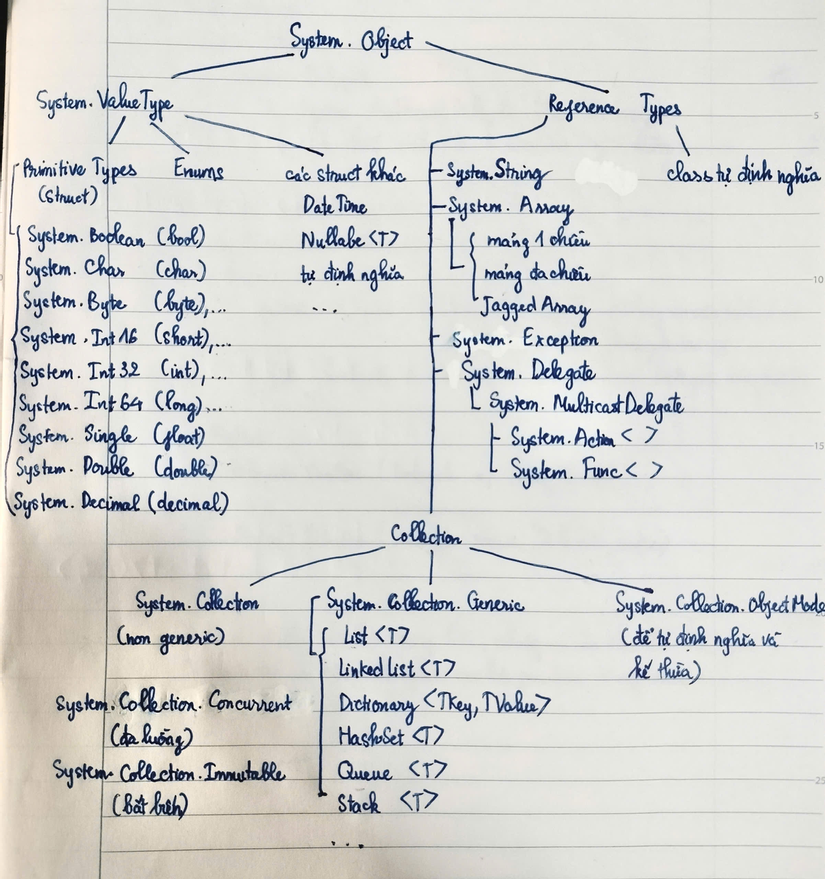 System. Object
System. ValueType
Reference Types
Primitive Types
(struct)
Enums
các struct khác
DateTime
Nullabe <T>
tự định nghĩa
...
System. Boolean (bool)
System. Char (char)
System. Byte (byte),...
System. Int 16 (short),...
System. Int 32 (int),...
System. Int 64 (long)...
System. Single (float)
System. Double (double)
System. Decimal (decimal)
System. String
System. Array
mảng 1 chiều
mảng đa chiều
Jagged Array
System. Exception
System. Delegate
System. MulticastDelegate
System. Action < >
System. Func < >
class tự định nghĩa
Collection
System. Collection
(non generic)
System. Collection. Concurrent
(đa luồng)
System. Collection. Immutable
(bất biến)
System. Collection. Generic
List <T>
Linked List <T>
Dictionary <TKey, TValue>
HashSet <T>
Queue <T>
Stack <T>
...
System. Collection. ObjectMode
(để tự định nghĩa và
kế thừa)